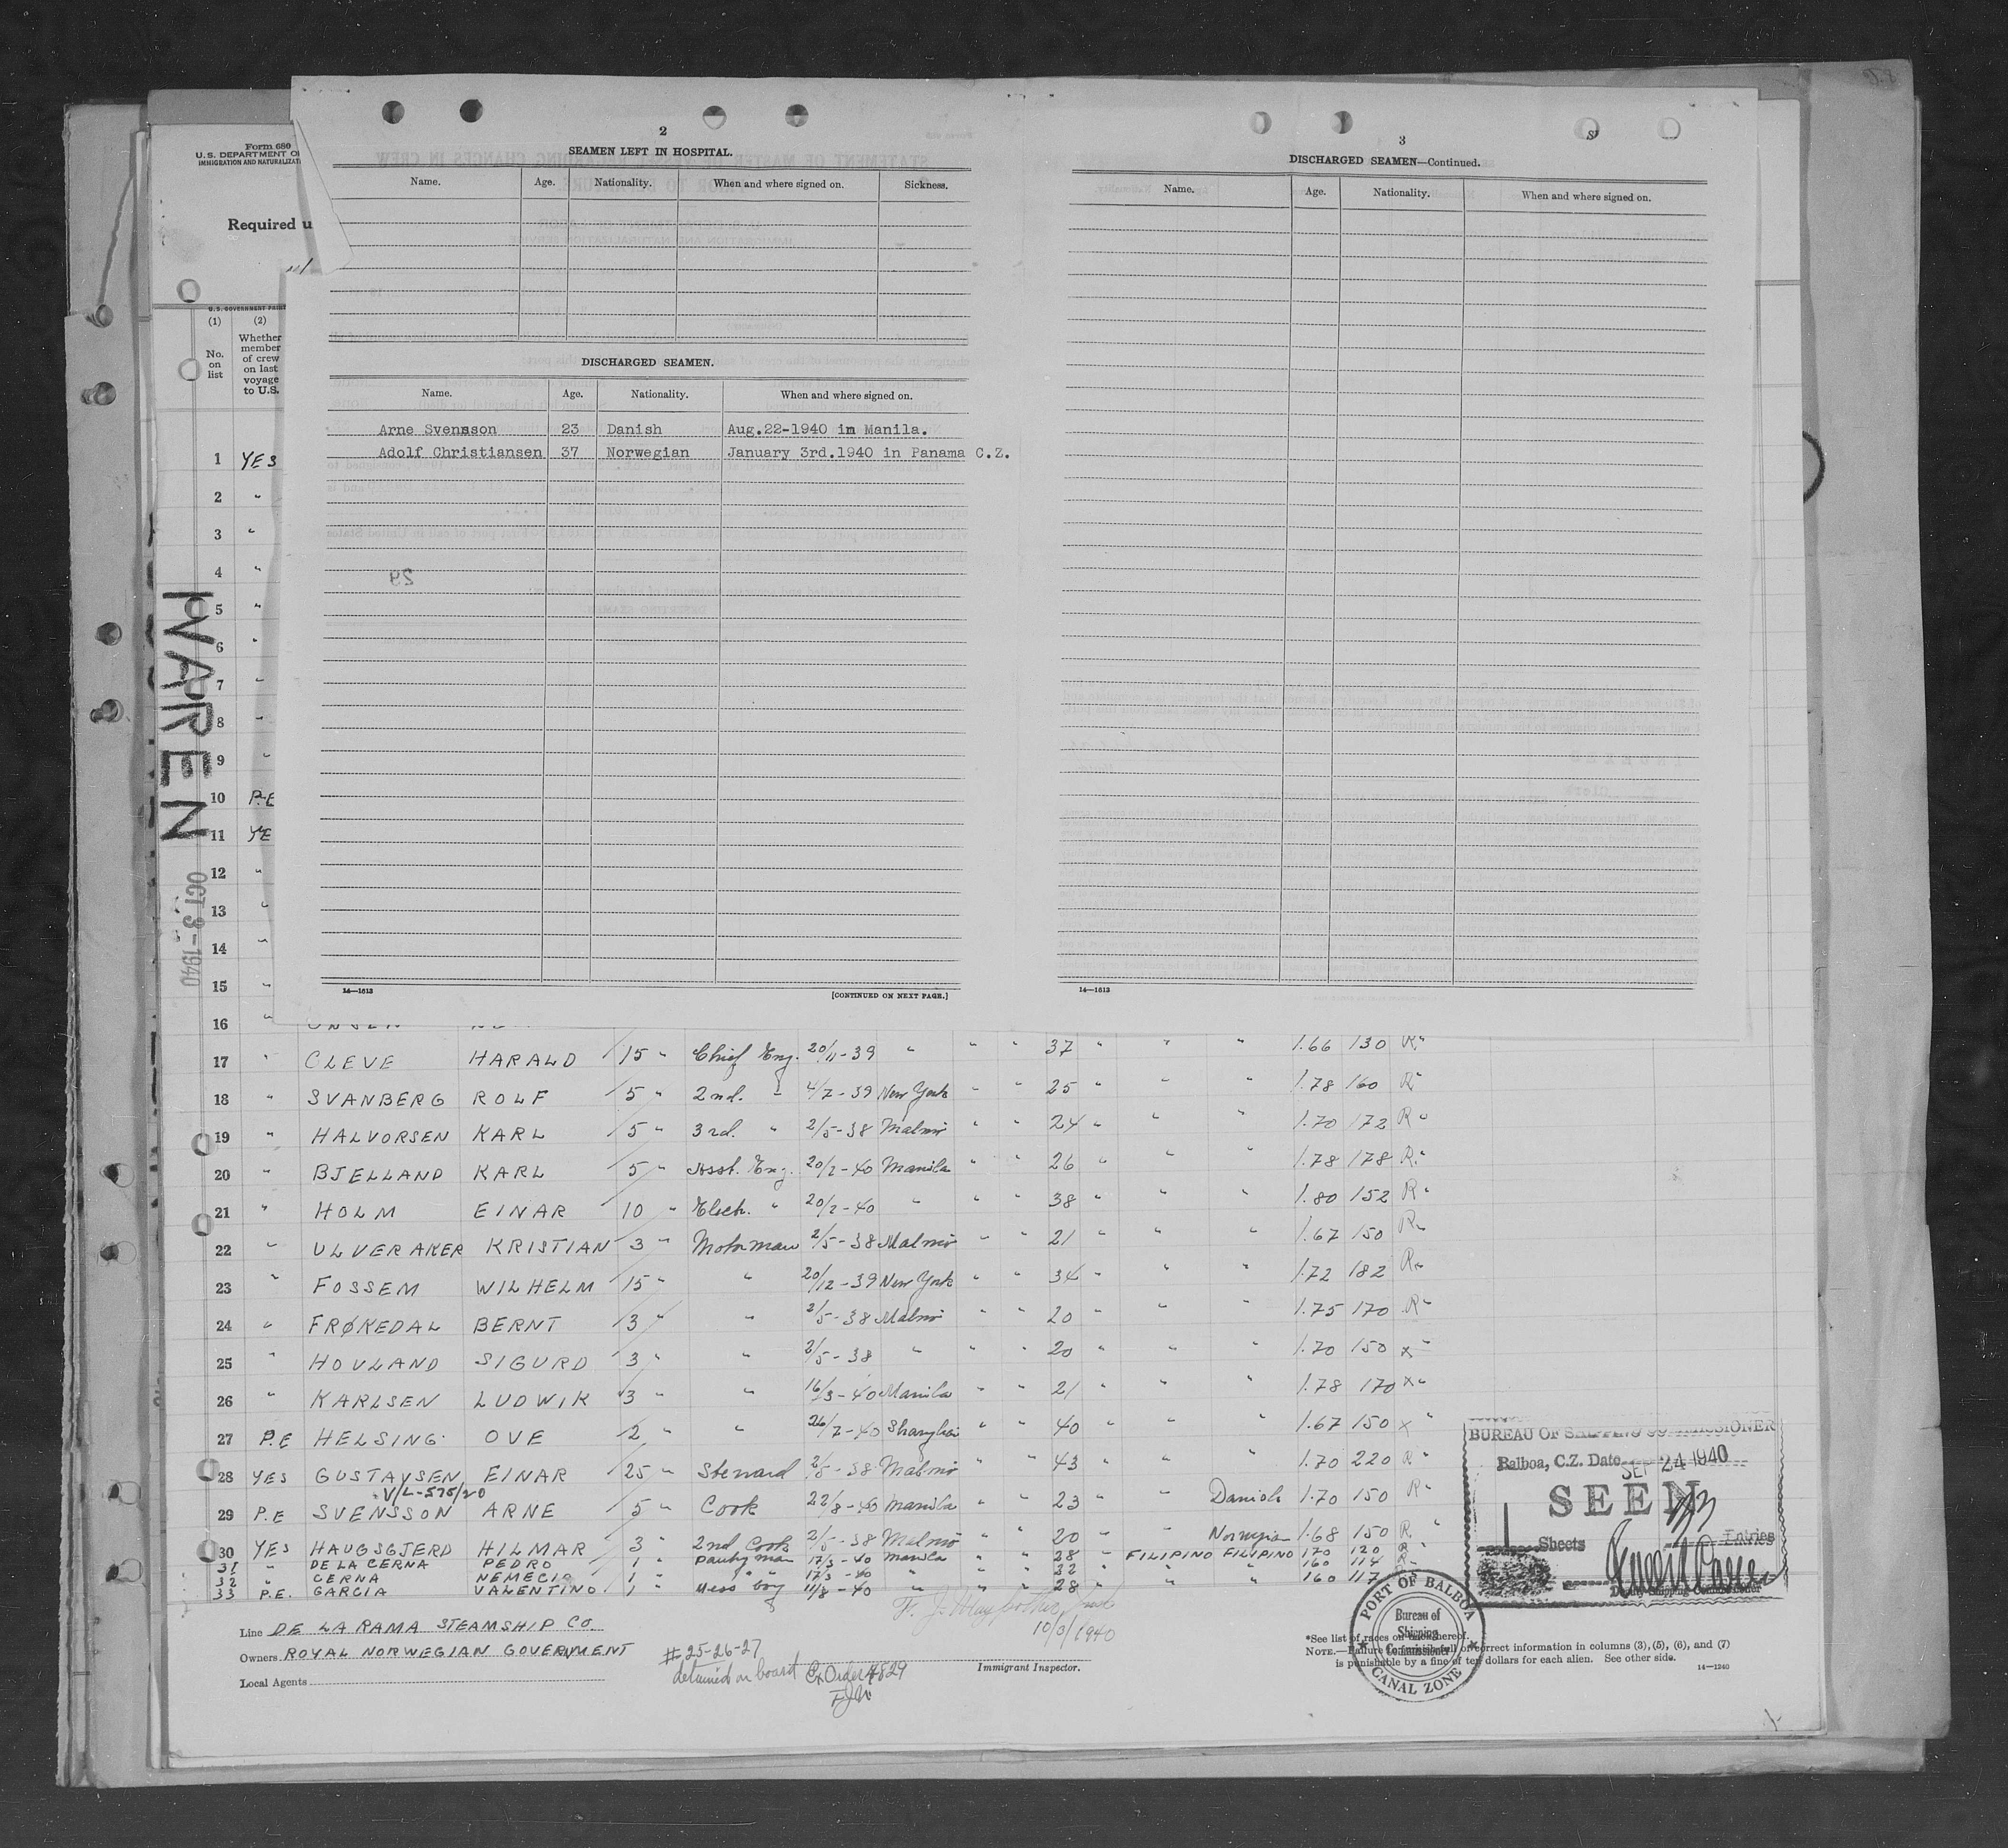 Form 680
U.S. DEPARTMENT O
IMMIGRATION AND NATURALIZAT
Required u
U.S. GOVERNMENT PRINT
(1) (2)
No. on list
Whether member of crew on last voyage to U.S.
2
SEAMEN LEFT IN HOSPITAL.
Name. Age. Nationality. When and where signed on. Sickness.
DISCHARGED SEAMEN.
Name. Age. Nationality. When and where signed on.
Arne Svensson 23 Danish Aug.22-1940 in Manila.
Adolf Christiansen 37 Norwegian January 3rd.1940 in Panama C.Z.
29
14—1613
[CONTINUED ON NEXT PAGE.]
3
DISCHARGED SEAMEN—Continued.
Name. Age. Nationality. When and where signed on.
14—1613
WAREN
OCT 3-1940
1 YES
2 "
3 "
4 "
5 "
6 "
7 "
8 "
9 "
10 P.E
11 YE
12 "
13 "
14 "
15 "
16 "
17 " CLEVE HARALD 15 " Chief Eng. 20/11-39 " " " 37 " " " 1.66 130 R "
18 " SVANBERG ROLF 5 " 2nd. " 4/7-39 New York " " 25 " " " 1.78 160 R "
19 " HALVORSEN KARL 5 " 3rd. " 2/5-38 Malmö " " 24 " " " 1.70 172 R "
20 " BJELLAND KARL 5 " Asst. Eng. 20/2-40 Manila " " 26 " " " 1.78 178 R "
21 " HOLM EINAR 10 " Elect. " 20/2-40 " " " 38 " " " 1.80 152 R "
22 " ULVERAKER KRISTIAN 3 " Motorman 2/5-38 Malmö " " 21 " " " 1.67 150 R "
23 " FOSSEM WILHELM 15 " " 20/12-39 New York " " 34 " " " 1.72 182 R "
24 " FRØKEDAL BERNT 3 " " 2/5-38 Malmö " " 20 " " " 1.75 170 R "
25 " HOVLAND SIGURD 3 " " 2/5-38 " " " 20 " " " 1.70 150 x "
26 " KARLSEN LUDWIK 3 " " 16/3-40 Manila " " 21 " " " 1.78 170 x "
27 P.E HELSING OVE 2 " " 26/7-40 Shanghai " " 40 " " " 1.67 150 x "
28 YES GUSTAVSEN EINAR 25 " Steward 2/5-38 Malmö " " 43 " " " 1.70 220 R "
V/L-575/20
29 P.E SVENSSON ARNE 5 " Cook 22/8-40 Manila " " 23 " " Danish 1.70 150 R "
30 YES HAUGSGJERD HILMAR 3 " 2nd Cook 2/5-38 Malmö " " 20 " " 1.68 150 R "
31 " DE LA CERNA PEDRO 1 " Pantryman 17/3-40 Manila " " 28 " FILIPINO FILIPINO 170 120 R "
32 " CERNA NEMECIO 1 " " 17/3-40 " " " 22 " " " 160 114 R "
33 P.E. GARCIA VALENTINO 1 " Mess boy 11/8-40 " " " 28 " " " 160 117
Line DE LA RAMA STEAMSHIP CO.
Owners ROYAL NORWEGIAN GOVERNMENT
Local Agents
#25-26-27
detained on board Ex Order 8429
10/3/1940
Immigrant Inspector.
BUREAU OF SHIPPING COMMISSIONER
Balboa, C.Z. Date SEP 24 1940
SEEN
Sheets Entries
Deputy Shipping Commissioner
PORT OF BALBOA
Bureau of Shipping Commissioner
CANAL ZONE
*See list of races on back hereof.
NOTE.—Failure to furnish full or correct information in columns (3), (5), (6), and (7)
is punishable by a fine of ten dollars for each alien. See other side.
14—1240